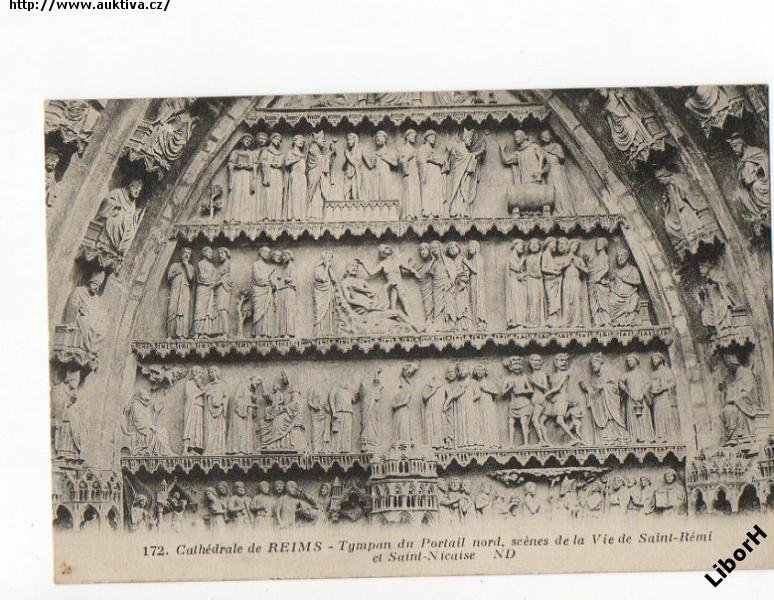 http://www.auktiva.cz/
172. Cathédrale de REIMS - Tympan du Portail nord, scènes de la Vie de Saint-Rémi
et Saint-Nicaise ND
LiborH